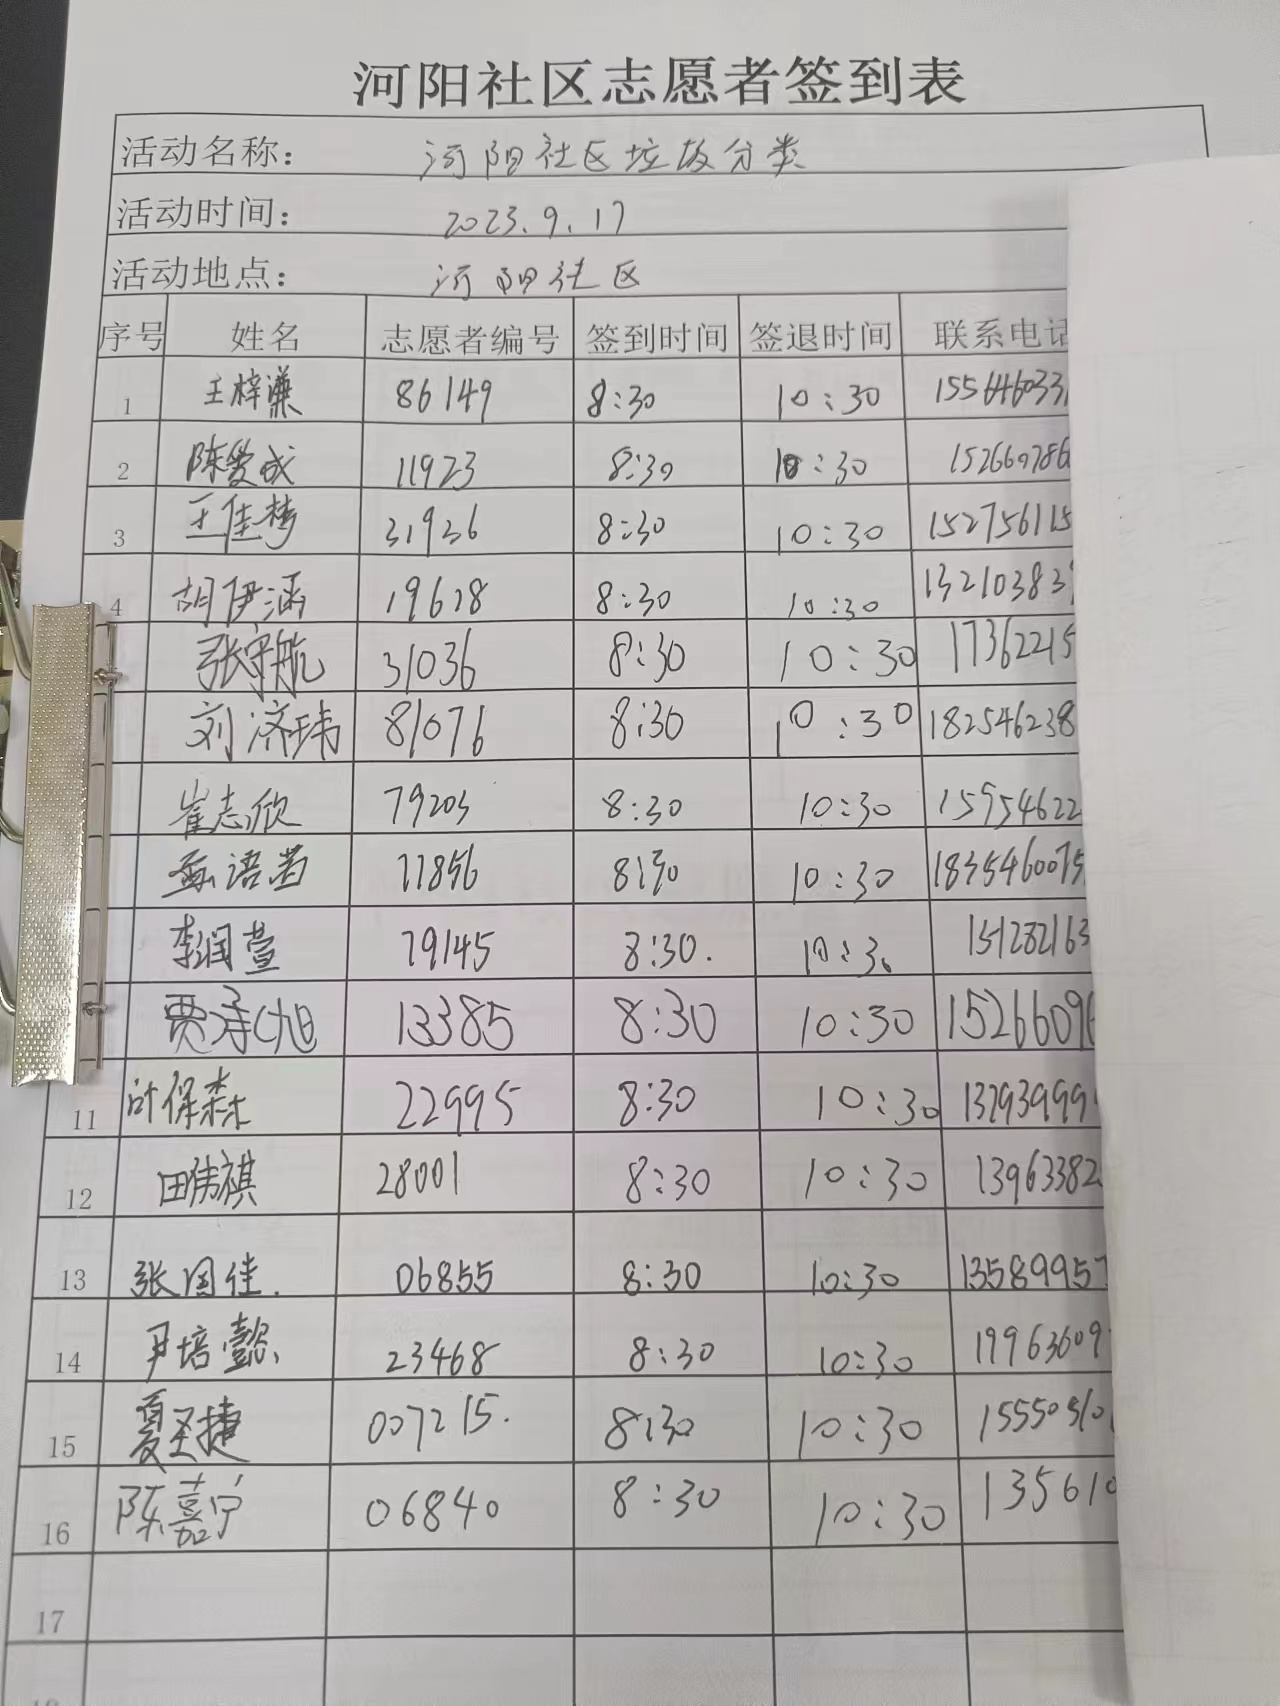 河阳社区志愿者签到表
活动名称： 河阳社区垃圾分类
活动时间： 2023.9.17
活动地点： 河阳社区
序号 姓名 志愿者编号 签到时间 签退时间 联系电话
1 王梓谦 86149 8:30 10:30 155646033
2 陈爱成 11923 8:30 10:30 152669786
3 王佳梦 31936 8:30 10:30 152756115
4 胡伊涵 19628 8:30 10:30 13210383
张宇航 31036 8:30 10:30 17362215
刘济玮 81076 8:30 10:30 182546238
崔志欣 79203 8:30 10:30 15954622
语茜 77856 8:30 10:30 1835460075
李润萱 79145 8:30. 10:30 151282163
贾 旭 13385 8:30 10:30 15266096
11 叶保森 22995 8:30 10:30 137939999
12 田伟祺 28001 8:30 10:30 13963382
13 张国佳. 06855 8:30 10:30 13589957
14 尹培懿 23468 8:30 10:30 19963609
15 夏圣捷 007215. 8:30 10:30 15550510
16 陈嘉宁 06840 8:30 10:30 135610
17